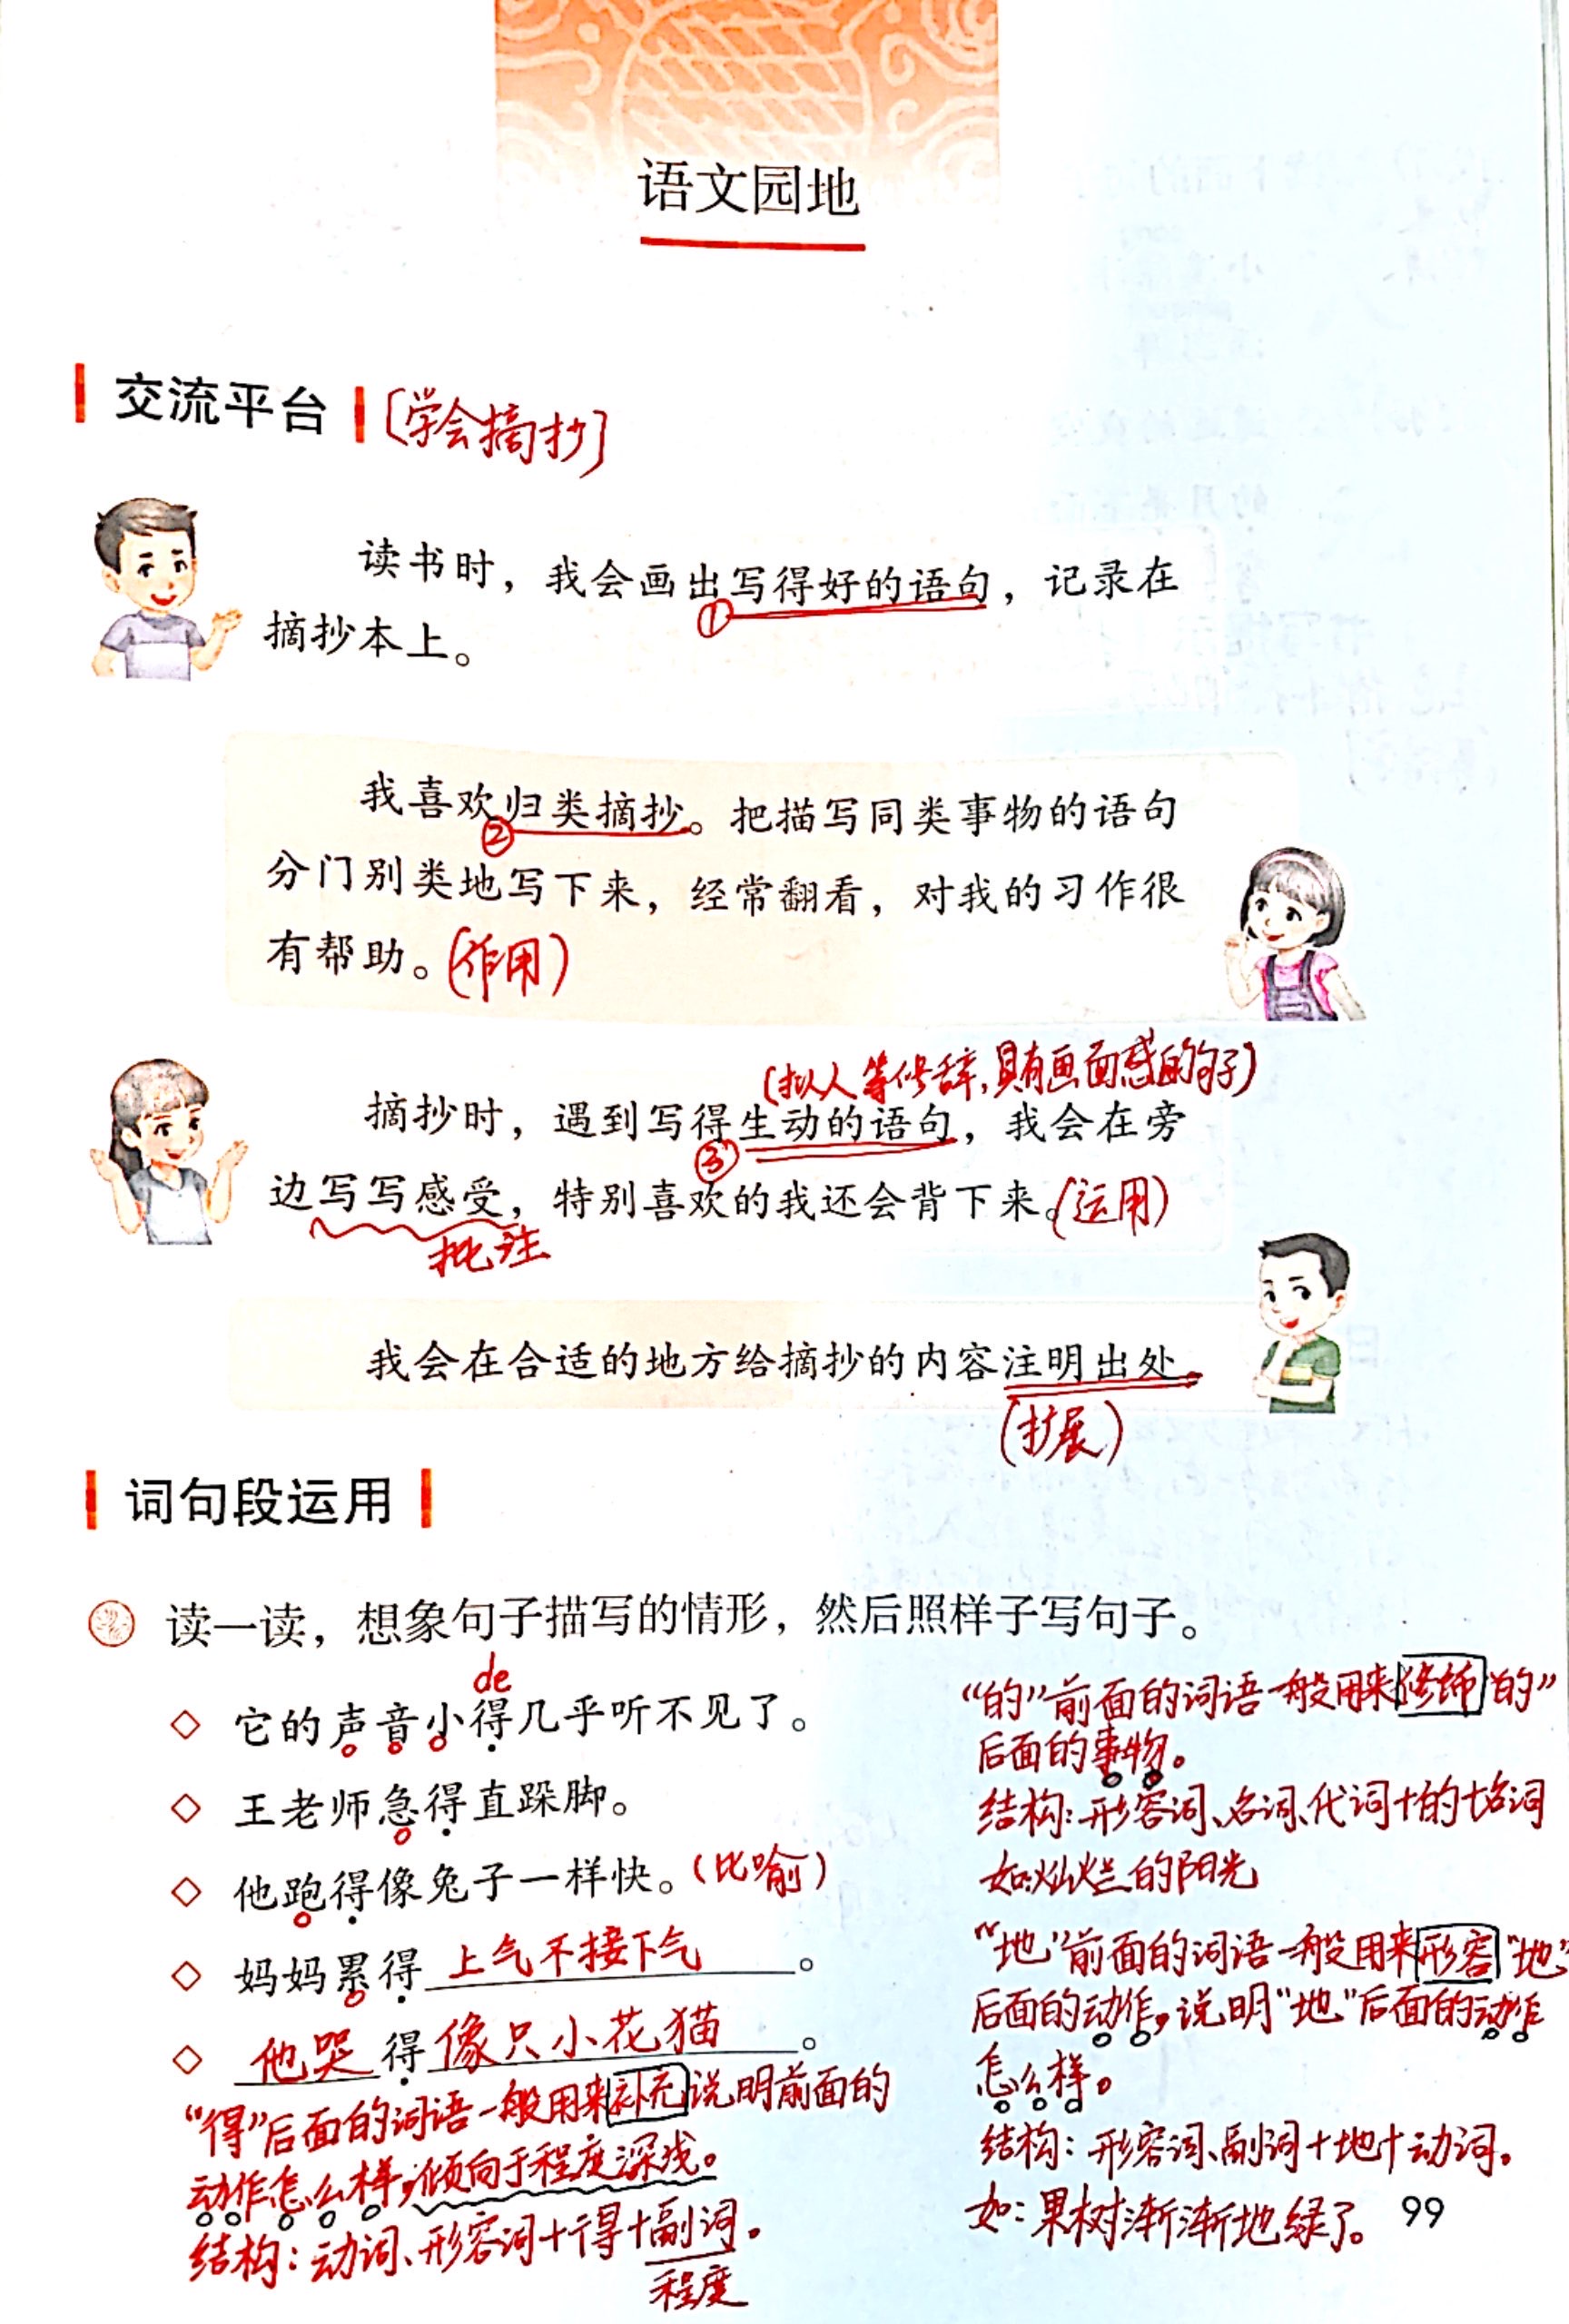 语文园地
交流平台 [学会摘抄]
读书时，我会画出写得好的语句，记录在
①
摘抄本上。
我喜欢归类摘抄。把描写同类事物的语句
②
分门别类地写下来，经常翻看，对我的习作很
有帮助。(作用)
(拟人等修辞,具有画面感的句子)
摘抄时，遇到写得生动的语句，我会在旁
③
边写写感受，特别喜欢的我还会背下来。(运用)
批注
我会在合适的地方给摘抄的内容注明出处。
(扩展)
词句段运用
读一读，想象句子描写的情形，然后照样子写句子。
de
◇ 它的声音小得几乎听不见了。
◇ 王老师急得直跺脚。
◇ 他跑得像兔子一样快。(比喻)
◇ 妈妈累得 上气不接下气 。
◇ 他哭 得 像只小花猫 。
"得"后面的词语一般用来补充说明前面的
动作怎么样,倾向于程度深浅。
结构:动词、形容词+得+副词。
程度
"的"前面的词语一般用来修饰"的"
后面的事物。
结构:形容词、名词、代词+的+名词
如:灿烂的阳光
"地"前面的词语一般用来形容"地"
后面的动作,说明"地"后面的动作
怎么样。
结构:形容词、副词+地+动词。
如:果树渐渐地绿了。
99